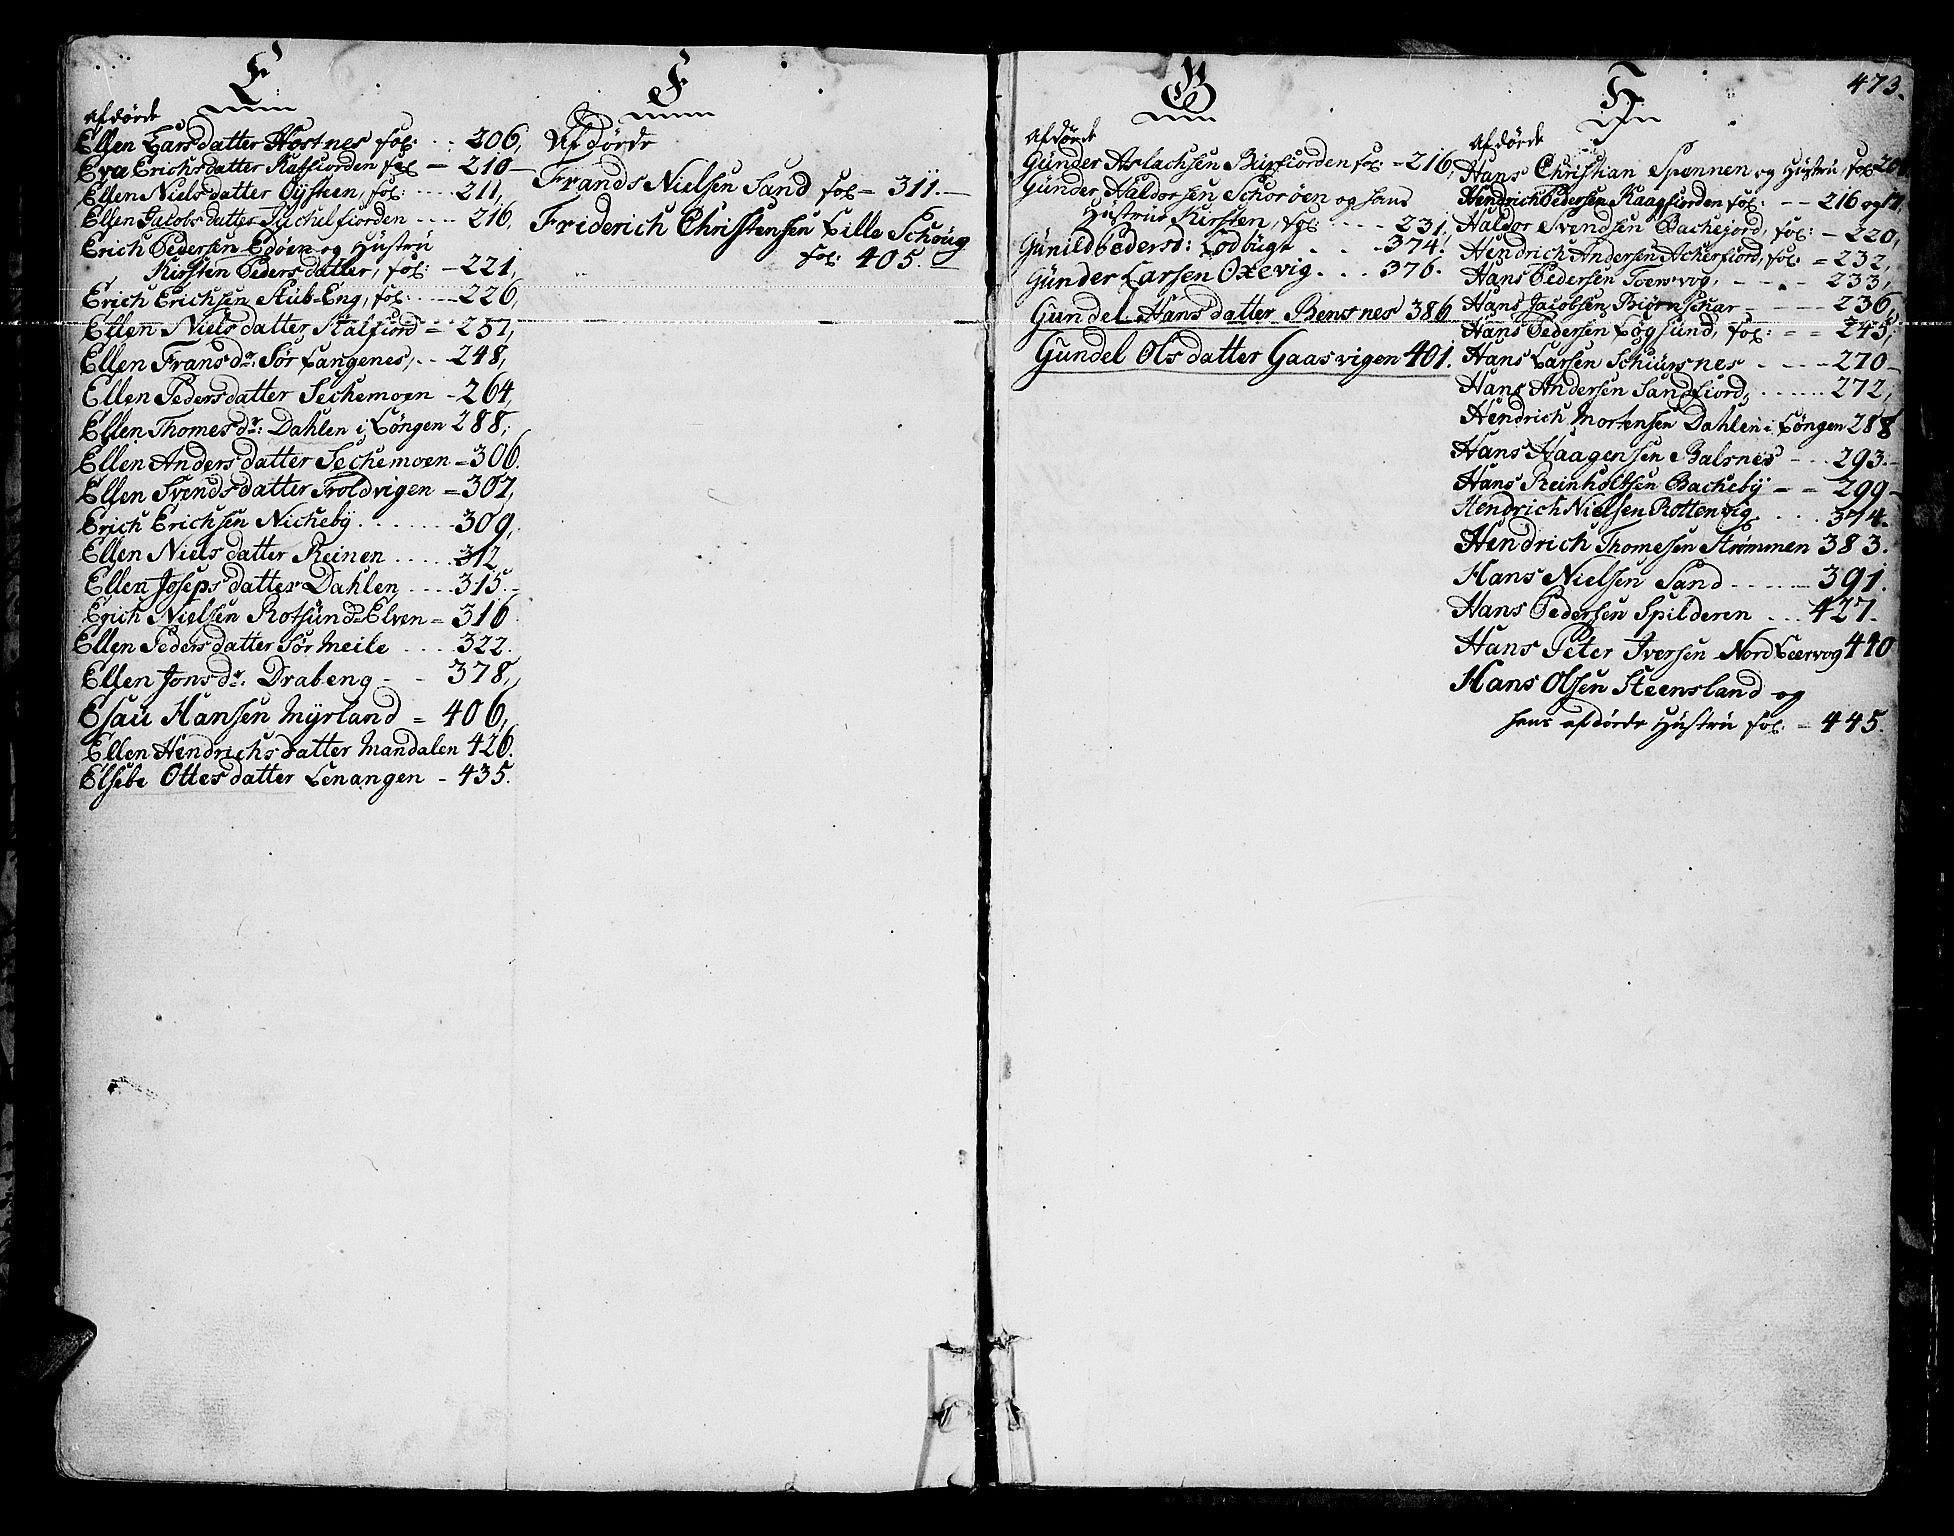 E
Afdörde
Ellen Larsdatter Hostnes fol: .. 206,
Eva Erichsdatter Katfiorden fol = 210
Ellen Nielsdatter Öysteen, fol: .... 211,
Ellen Jacobsdatter Juchelfiorden .... 216,
Erich Pedersen Edøen og Hustrü
Kirsten Pedersdatter, fol: - 221,
Erich Erichsen Stüb-Eng, fol: .... 226,
Ellen Nielsdatter Stalfiord = 237,
Ellen Fransdr: Sør Langenes, .. 248,
Ellen Pedersdatter Sechemoen - 264,
Ellen Thomesdr: Dahlen i Löngen 288,
Ellen Andersdatter Sechemoen = 306.
Ellen Svendsdatter Troldvigen = 307,
Erich Erichsen Nicheby ....... 309,
Ellen Nielsdatter Reinen ...... 312
Ellen Josepsdatter Dahlen .... 315.
Erich Nielsen Rotsünd-Elven = 316
Ellen Pedersdatter Sør Meile .... 322.
Ellen Jonsdr: Drabeng - - 378,
Esaü Hansen Myrland = 406,
Ellen Hendrichsdatter Mandalen 426.
Elsebe Ottesdatter Lenangen - 435.
F
Afdörde
Frands Nielsen Sand fol = 311.
Friderich Christensen Lille Schoug
fol: 405.
G
Afdørde
Günder Aslachsen Bürfiorden fol: = 216,
Günder Haldorsen Schorøen og hans
Hüstrüe Kirsten, fol: .... 231,
Günild Pedersd: Lodbügt . . ... 374.
Günder Larsen Oxevig. ... 376.
Gundel Hansdatter Bensnes 386
Gundel Olsdatter Gaasvigen 401.
473.
H
Afdørde
Hans Christian Spennen og Hüstrü, fol
Hendrich Pedersen Kaagfiorden fol: -- 216 og 17
Haldor Svendsen Bachejord, fol: - 220,
Hendrich Andersen Acherfiord, fol: = 232,
Hans Pedersen - - . - 233,
Hans Jacobsen - - - - 236,
Hans Pedersen Løgsund, fol: = = 245,
Hans Larsen Schiürsnes - - - - 270
Hans Andersen Sandfiord, ....... 272,
Hendrich Mortensen Dahlen i Löngen 288
Hans Haagensen Balsnes - .. 293.
Hans Reinholtsen Bacheby = = 299
Hendrich Nielsen Rottenvig .... 374.
Hendrich Thomesen Strømmen 383.
Hans Nielsen Sand ........ 391.
Hans Pedersen Spilderen ... 427.
Hans Peter Iversen Nord Leervog 440
Hans Olsen Steensland og
hans afdörde Hüstrü fol: = 445.